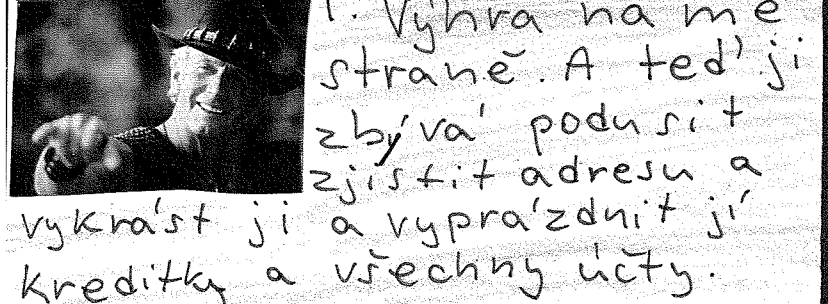 1. Výhra na mé
straně. A teď ji
zbývá podusit
zjistit adresu a
vykrást ji a vyprázdnit jí
kreditky a všechny účty.